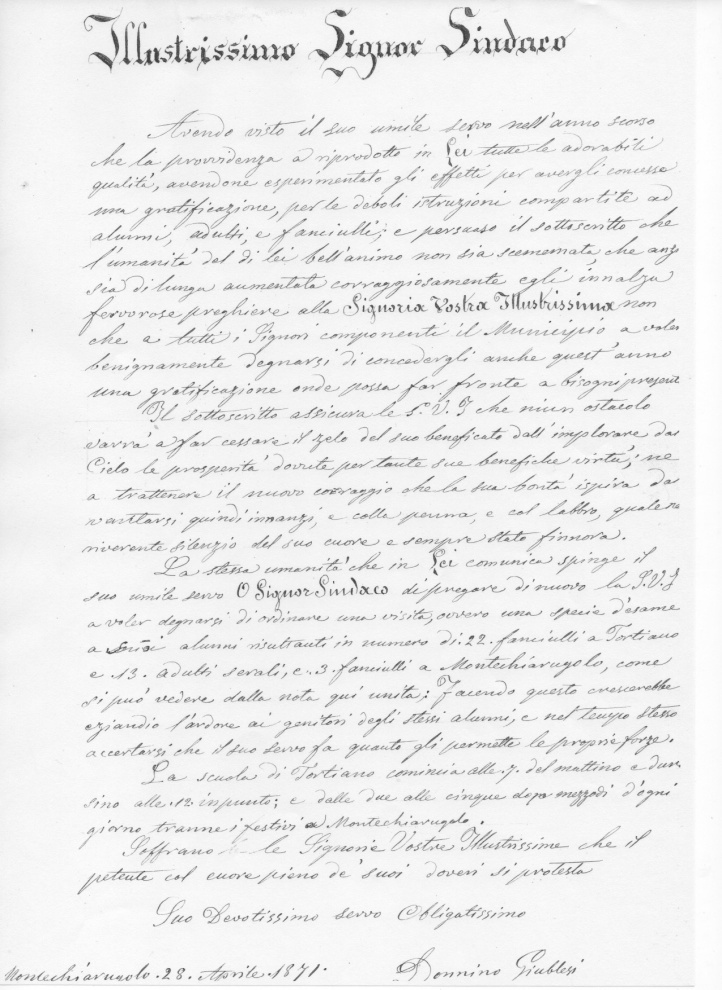 Illustrissimo Signor Sindaco
Avendo visto il suo umile servo nell'anno scorso
che la provvidenza a riprodotto in Lei tutte le adorabili
qualità, avendone esperimentato gli effetti per avergli concesse
una gratificazione, per le deboli istruzioni compartite ad
alunni, adulti, e fanciulli; e persuaso il sottoscritto che
l'umanità del di lei bell'animo non sia scememata, che anzi
sia di lunga aumentata corraggiosamente egli innalza
fervorose preghiere alla Signoria Vostra Illustrissima non
che a tutti i Signori componenti il Municipio a voler
benignamente degnarsi di concedergli anche quest'anno
una gratificazione onde possa far fronte a bisogni present
Il sottoscritto assicura le S. V. I che niun ostacolo
varrà a far cessare il zelo del suo beneficato dall'implorare dal
Cielo le prosperità dovute per tante sue benefiche virtù; ne
a trattenere il nuovo corraggio che la sua bontà ispira da
vantarsi quindi innanzi, e colla penna, e col labbro, quale
riverente silenzio del suo cuore e sempre stato finnora.
La stessa umanità che in Lei comunica spinge il
suo umile servo O Signor Sindaco di pregare di nuovo la S. V. I
a voler degnarsi di ordinare una visita, ovvero una specie d'esame
a alunni risultanti in numero di 22. fanciulli a Tortiano
e .13. adulti serali, e .3. fanciulli a Montechiarugolo, come
si può vedere dalla nota quì unita; Facendo questo crescerebbe
eziandio l'ardore ai genitori degli stessi alunni, e nel tempo stesso
accertarsi che il suo servo fa quanto gli permette le proprie forze.
La scuola di Tortiano comincia alle .7. del mattino e dura
sino alle .12. in punto; e dalle due alle cinque dopo mezzodì d'ogni
giorno tranne i festivi a Montechiarugolo.
Soffrano le Signorie Vostre Illustrissime che il
petente col cuore pieno de' suoi doveri si protesta
Suo Devotissimo servo Obligatissimo
Montechiarugolo .28. Aprile .1871.
Donnino Giublesi